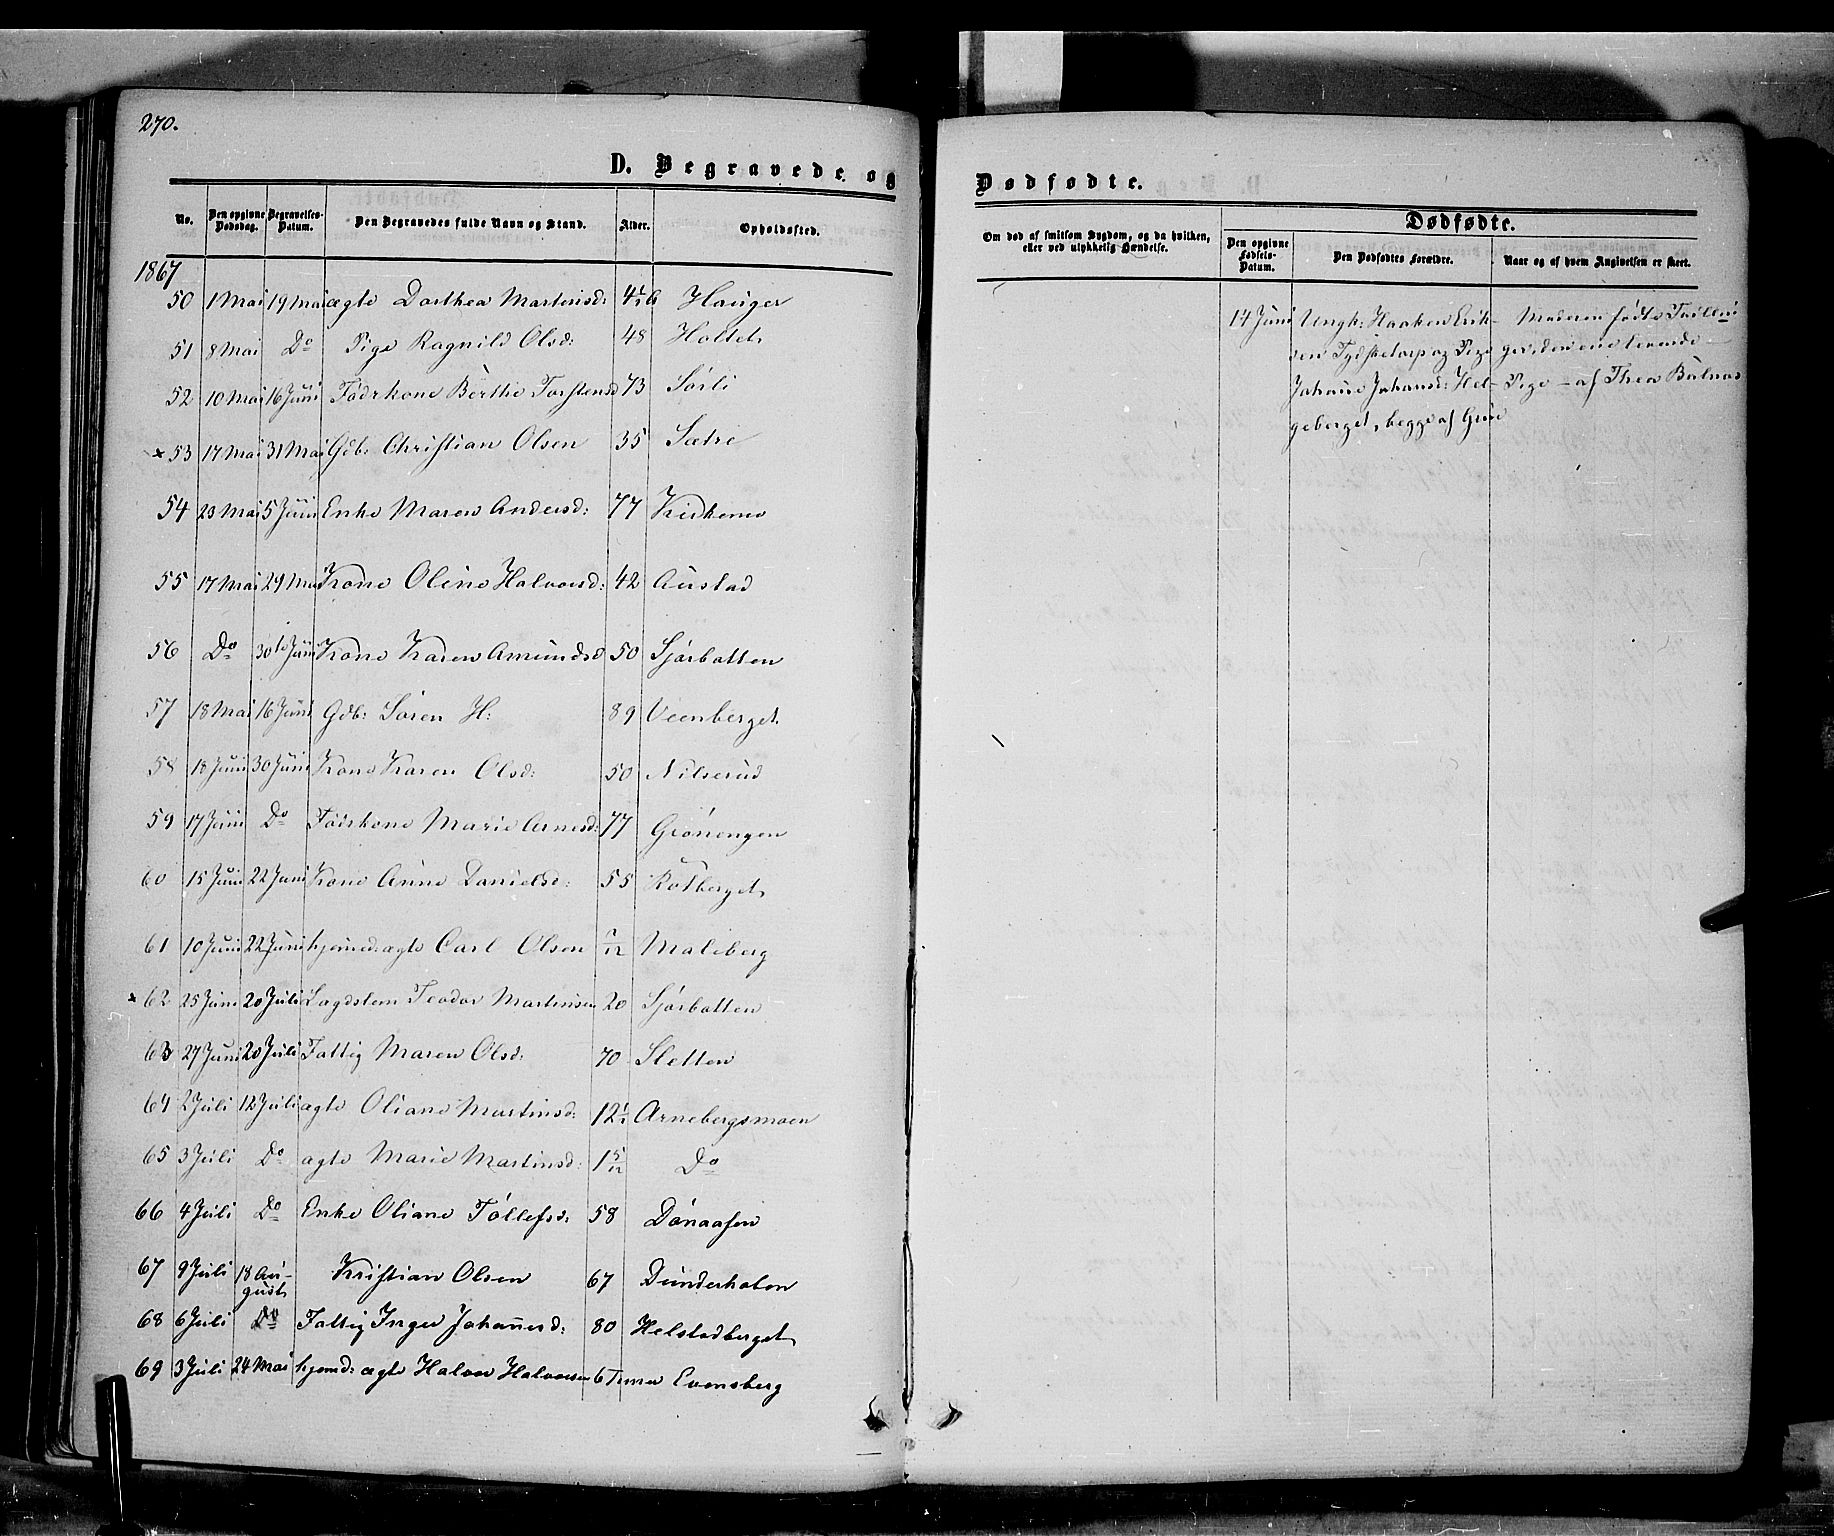 270.
D. Begravede og
Dødfødte.
No. Den opgivne Dødsdag. Begravelses-Datum. Den Begravedes fulde Navn og Stand. Alder. Opholdssted.
1867
50 1 Mai 19 Mai ægte Dorthea Martinsd: Hauger
51 8 Mai Do Pige Ragnild Olsd: 48 Holtet
52 10 Mai 16 Juni Föderkone Berthe Torstensd 73 Sörli
× 53 17 Mai 31 Mai Gdb: Christian Olsen 35 Sætre
54 23 Mai 5 Juni Enke Maren Andersd: 77 Kirkemo
55 17 Mai 29 Mai Kone Oline Halvorsd: 42 Austad
56 Do 30te Juni Kone Karen Amundsd 50 Sjörbotten
57 18 Mai 16 Juni Gdb: Sören H: 89 Veenberget
58 18 Juni 30 Juni Kone Karen Olsd: 50 Nilserud
59 17 Juni Do Föderkone Marie Arnesd: 77 Grönengen
60 15 Juni 22 Juni Kone Anne Danielsd: 55 Rotberget
61 10 Juni 22 Juni hjemmed: ægte Carl Olsen Maliberg
× 62 25 Juni 20 Juli Lægdslem Teodor Martinsen 20 Sjörbotten
63 27 Juni 20 Juli Fattig Maren Olsd: 70 Sletten
64 2 Juli 12 Juli ægte Oliane Martinsd: Arnebergsmoen
65 3 Juli Do ægte Marie Martinsd: 1 5/12 Do
66 4 Juli Do Enke Oliane Tollefsd: 58 Dönaasen
67 9 Juli 18 August Kristian Olsen 67 Dunderholen
68 6 Juli Do Fattig Inger Johannesd: 80 Helstadberget
69 3 Juli 24 Mai hjemd: ægte Halvor Halvorsen 6 Timer Evensberg
Om død af smitsom Sygdom, og da hvilken, eller ved ulykkelig Hændelse.
Dødfødte.
Den opgivne Fødsels-Datum. Den Dødfødtes Forældre. Naar og af hvem Angivelsen er skeet.
14 Juni Ungk: Haaken Erik- Moderen födte Tvillin
sen Tydsketorp og Pige ger, den ene levende –
Johanne Johansd: Hel- Pige – af Thea Bulnæs
geberget, begge af Grue